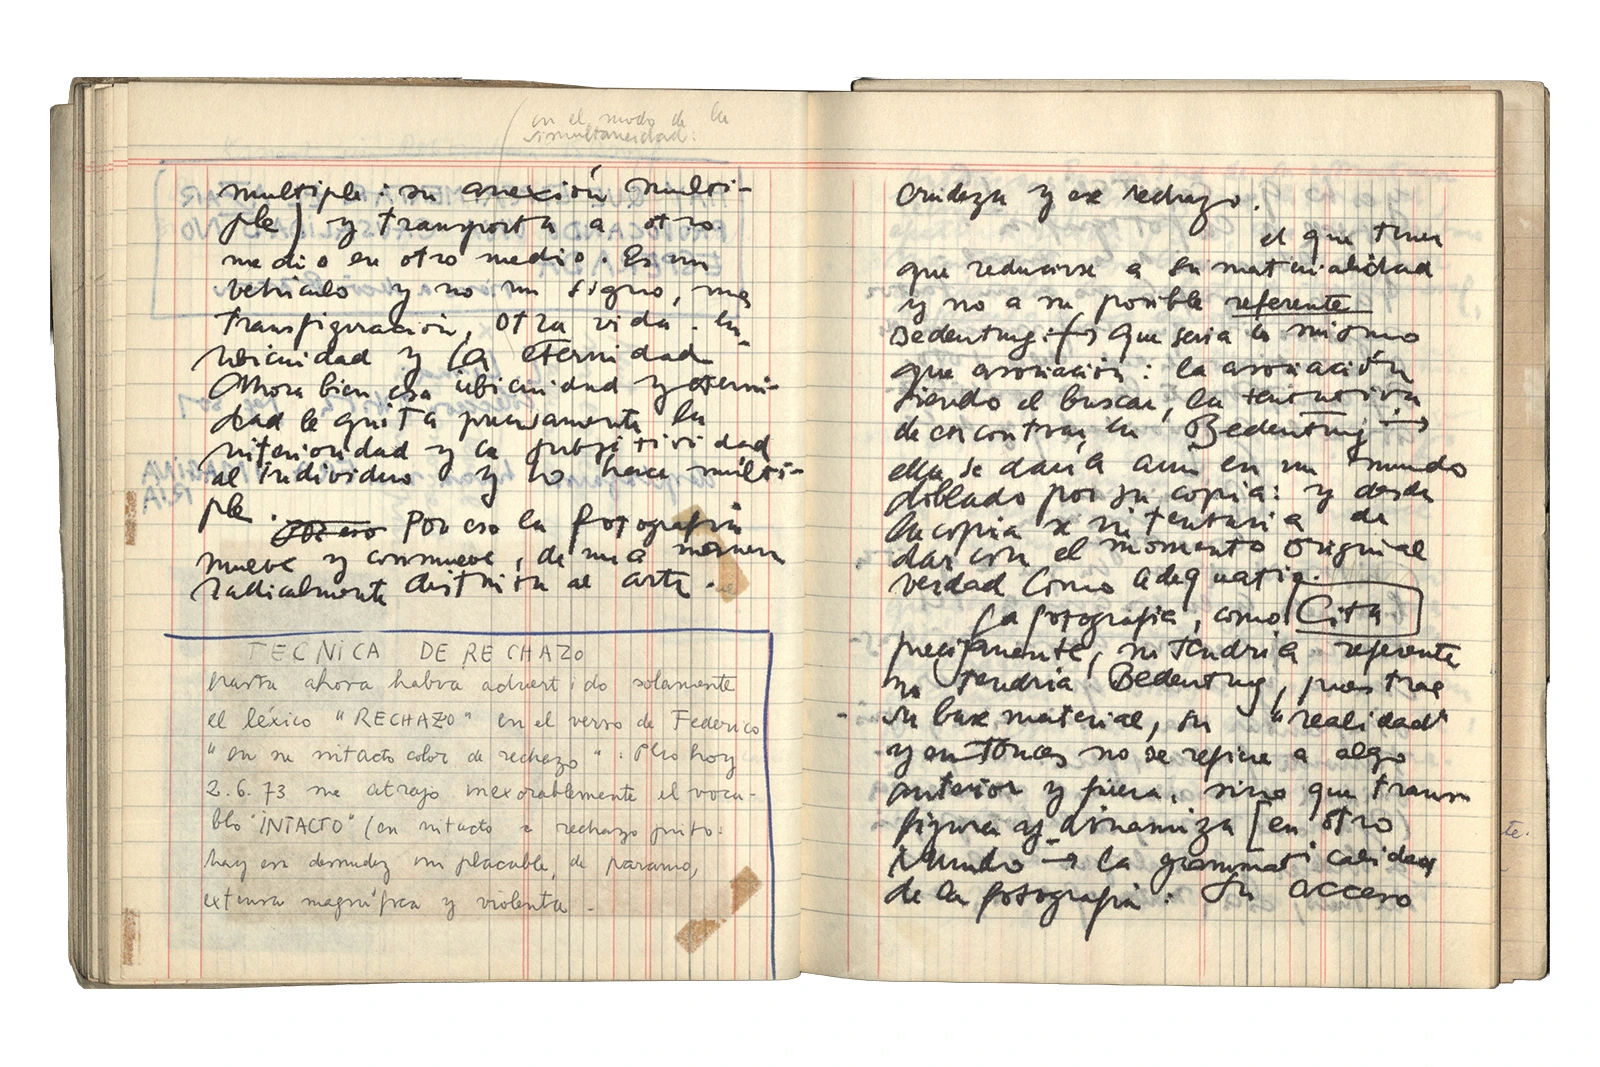 (en el modo de la
simultaneidad:
multiple: su anexión multi-
ple) y transporta a otro
medio en otro medio. Es un
vehículo y no un signo, una
transfiguración, otra vida. La
ubicuidad y la eternidad
Ahora bien, esa ubicuidad y eterni-
dad le quita precisamente la
interioridad y la subjetividad
al individuo y lo hace múlti-
ple.
Por eso la fotografía
mueve y conmueve, de una manera
radicalmente distinta al arte.
TECNICA DE RECHAZO
hasta ahora había advertido solamente
el léxico "RECHAZO" en el verso de Federico
"en su intacto color de rechazo". Pero hoy
2.6.73 me atrajo inexorablemente el voca-
blo "INTACTO" (en intacto e rechazo
hay esa desnudez implacable, de páramo,
extensa magnífica y violenta.
crudeza y ese rechazo.
el que tener
que reducirse a su materialidad
y no a su posible referente
Bedeutung: (→) que sería lo mismo
que asociación: la asociación
siendo el buscar, la tentativa
de encontrar la Bedeutung →
ella se daría aún en un mundo
doblado por su copia: y desde
la copia se intentaría de
dar con el momento original
verdad como adequatio.
La fotografía, como Cita
precisamente, no tendría referente
no tendría Bedeutung, pues trae
su base material, su "realidad"
y entonces no se refiere a algo
anterior y fuera, sino que trans
figura y dinamiza [en otro
Mundo → la gramaticalidad
de la fotografía. Su acceso
te.